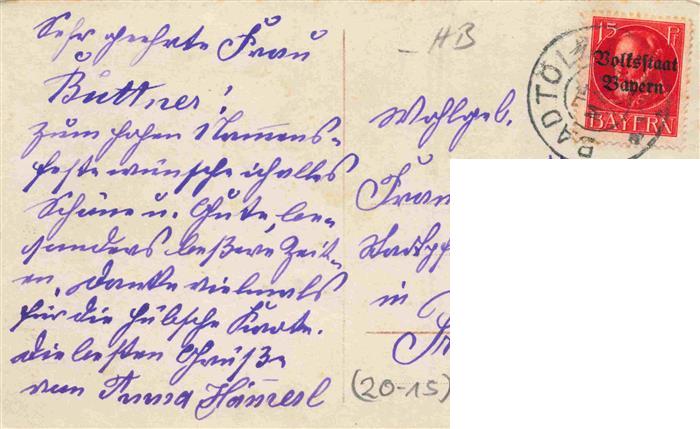 Sehr geehrte Frau
Büttner!
Zum hohen Namens-
feste wünsche ich alles
Schöne u. Gute, be-
sonders bessere Zeit-
en. Danke vielmals
für die hübsche Karte.
Die besten Grüße
von Anna
- HB
Wohlgeb.
Frau
Stadtpf
in
(20-15)
BAD TÖL
15 Pf
Volksstaat
Bayern
BAYERN